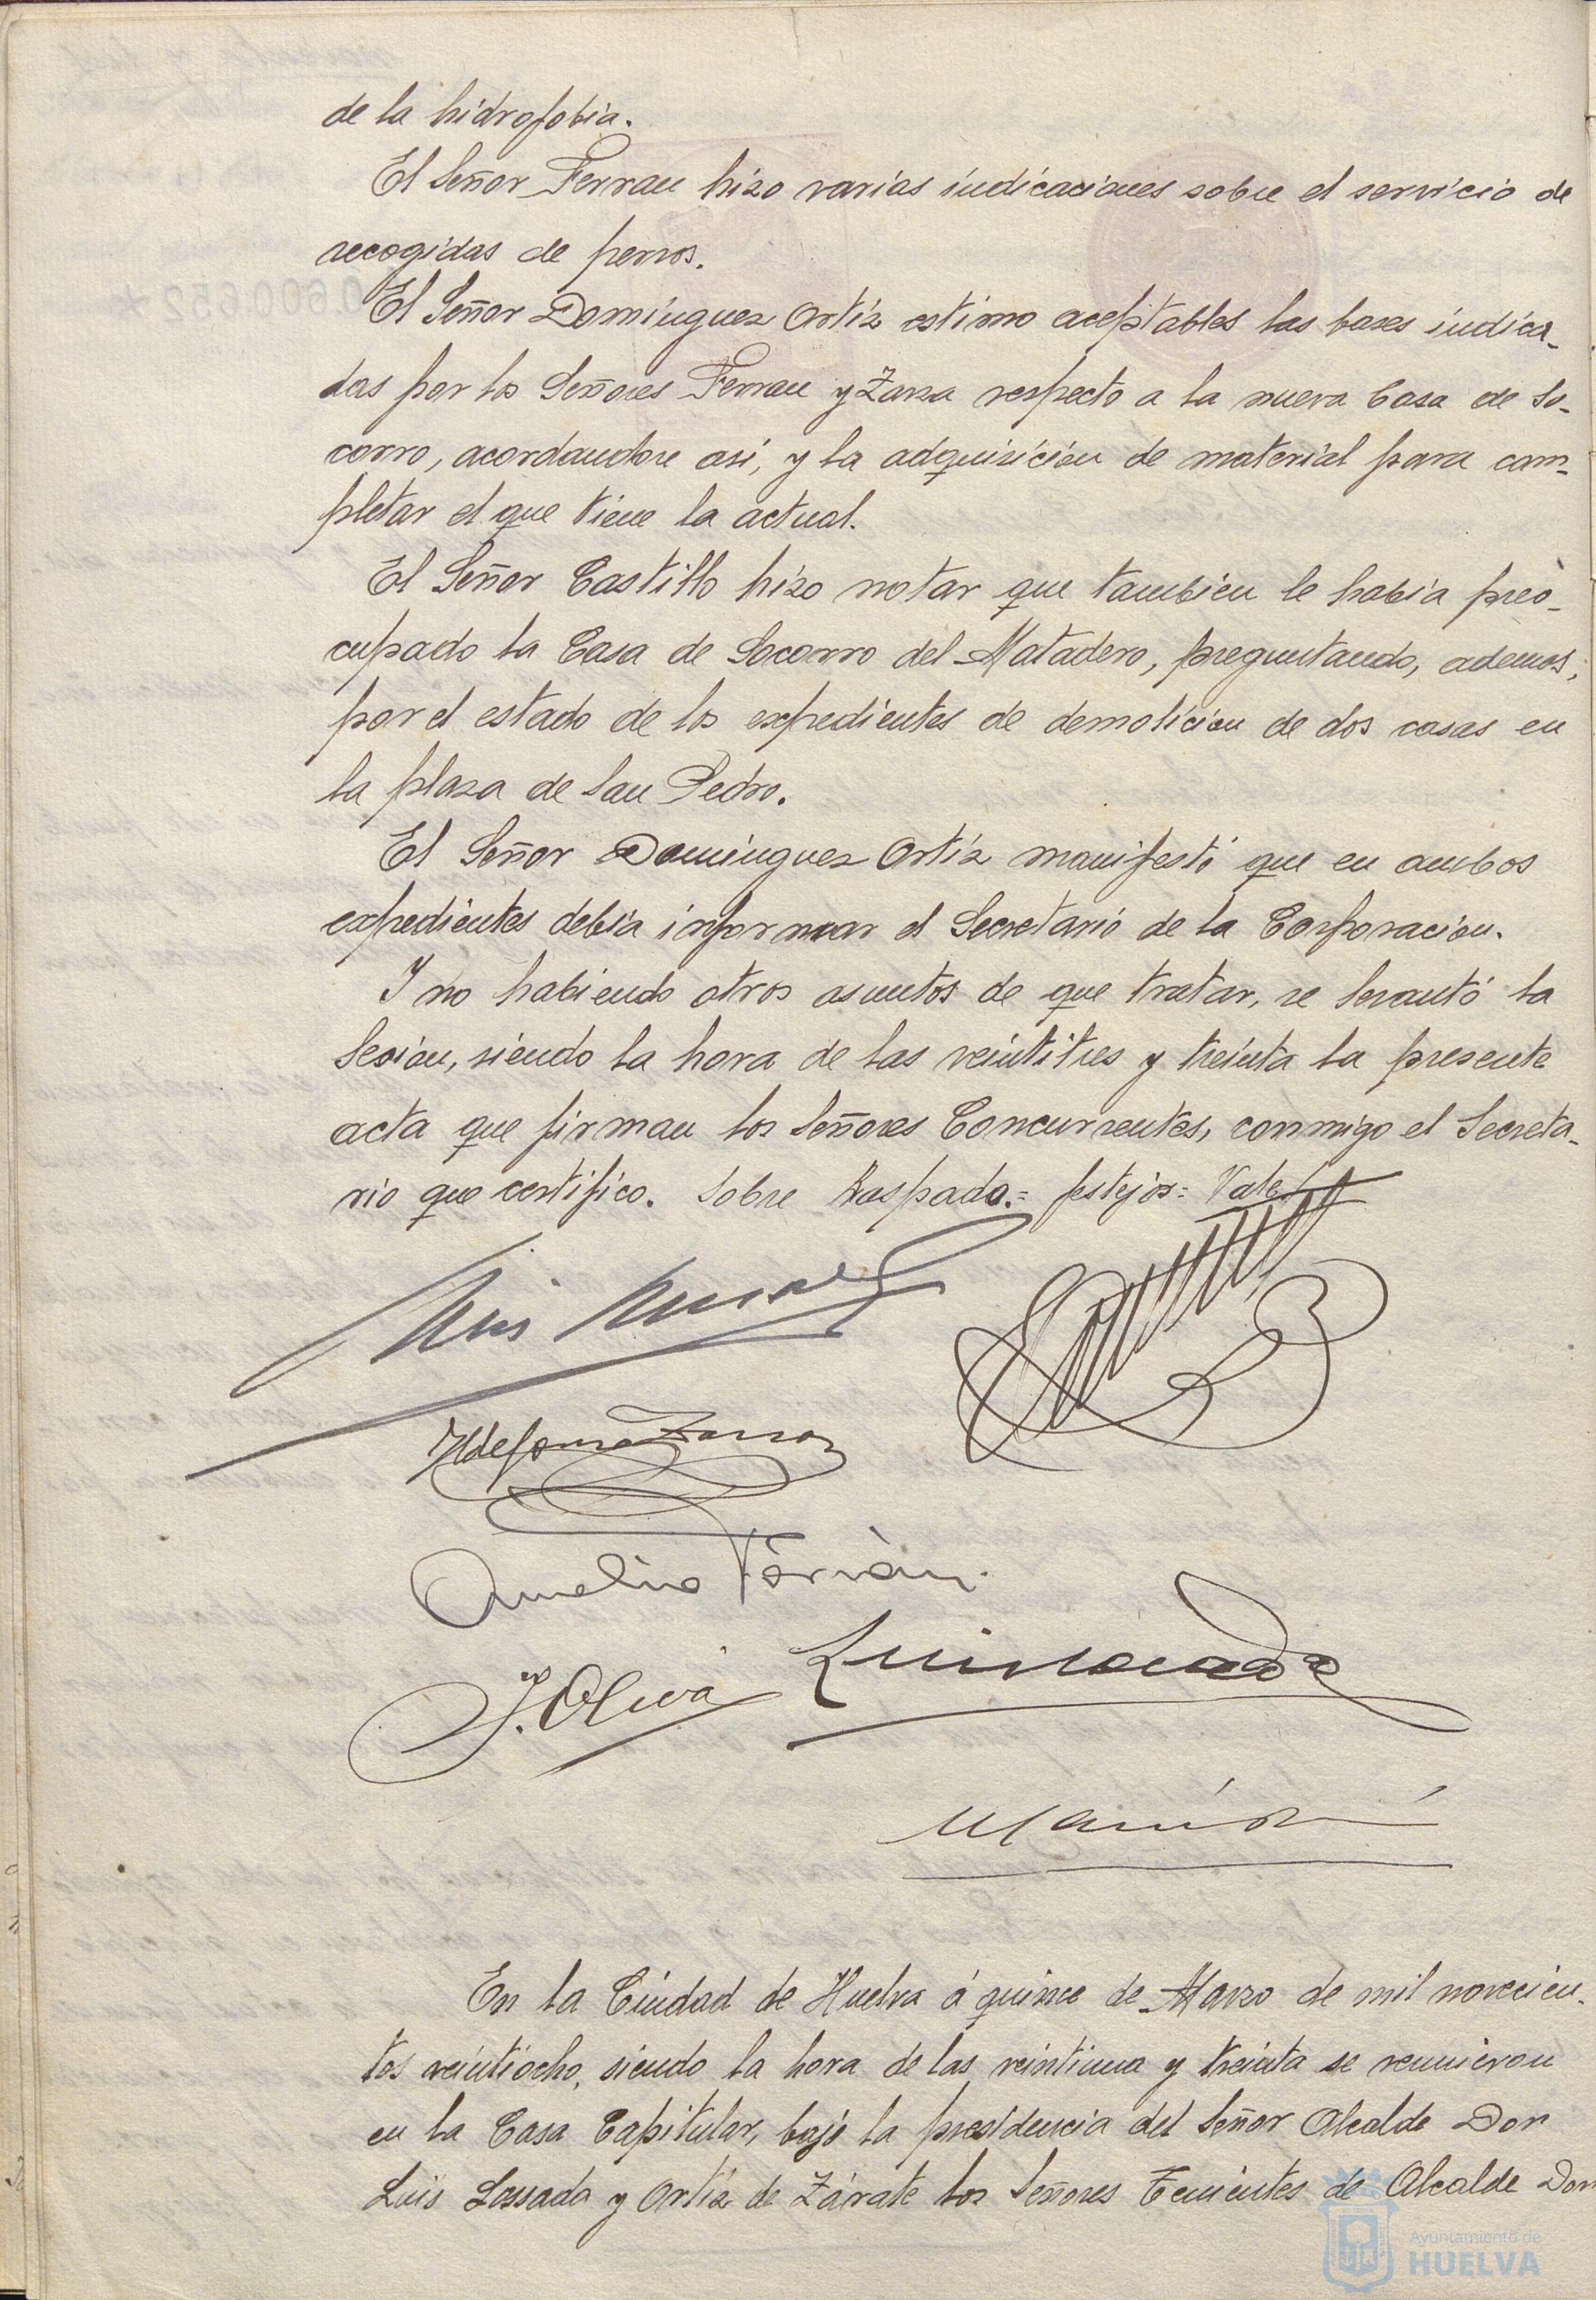 de la hidrofobia.
El Señor Ferran hizo varias indicaciones sobre el servicio de
recogidas de perros.
0600652 *
El Señor Dominguez Ortiz estimo aceptables las bases indica-
das por los Señores Ferran y Zarza respecto a la nueva Casa de So-
corro, acordandose asi, y la adquisición de material para com-
pletar el que tiene la actual.
El Señor Castillo hizo notar que tambien le habia preo-
cupado la Casa de Socorro del Matadero, preguntando, ademas,
por el estado de los expedientes de demolición de dos casas en
la plaza de San Pedro.
El Señor Dominguez Ortiz manifestó que en ambos
expedientes debia informar el Secretario de la Corporación.
Y no habiendo otros asuntos de que tratar, se levantó la
Sesión, siendo la hora de las veintitres y treinta la presente
acta que firman los Señores Concurrentes, conmigo el Secreta-
rio que certifico. Sobre Raspado.= festejos= Vale.
Ildefonso Zarza
Aurelino Ferrán.
J. Oliva Luis Losada
En la Ciudad de Huelva á quince de Marzo de mil novecien-
tos veintiocho, siendo la hora de las veintiuna y treinta se reunieron
en la Casa Capitular, bajo la presidencia del Señor Alcalde Don
Luis Lossada y Ortiz de Zárate los Señores Tenientes de Alcalde Don
Ayuntamiento de
HUELVA